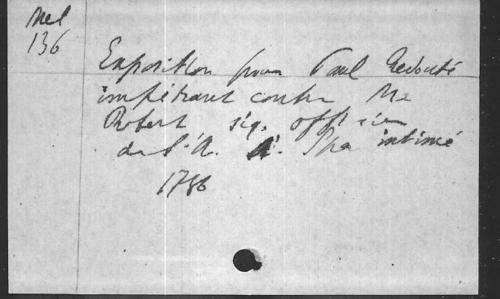 Mel
136
Exposition pour Paul Redouté
impétrant contre Me
Robert sig. officier
de S. A. intimé
1786